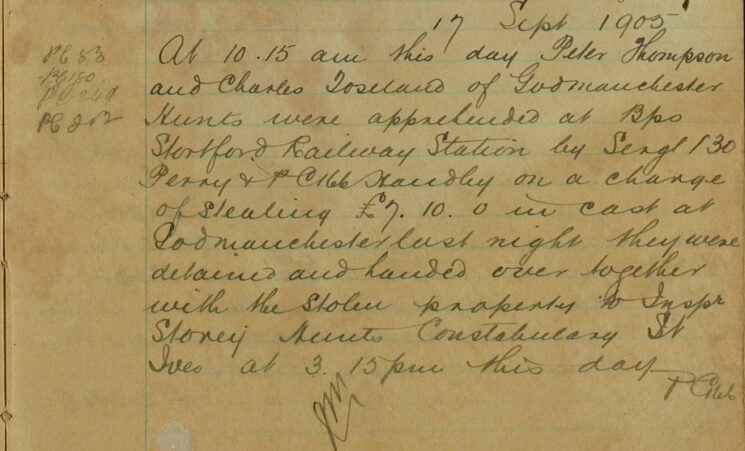 17 Sept 1905
PC 83
PC 180
PC 249
PC 202
At 10.15 am this day Peter Thompson
and Charles Toseland of Godmanchester
Hunts were apprehended at Bps
Stortford Railway Station by Sergt 130
Perry & PC 166 Handby on a charge
of stealing £7. 10. 0 in cast at
Godmanchester last night they were
detained and handed over together
with the stolen property to Inspr
Storey Hunts Constabulary St
Ives at 3. 15 pm this day
PC 166